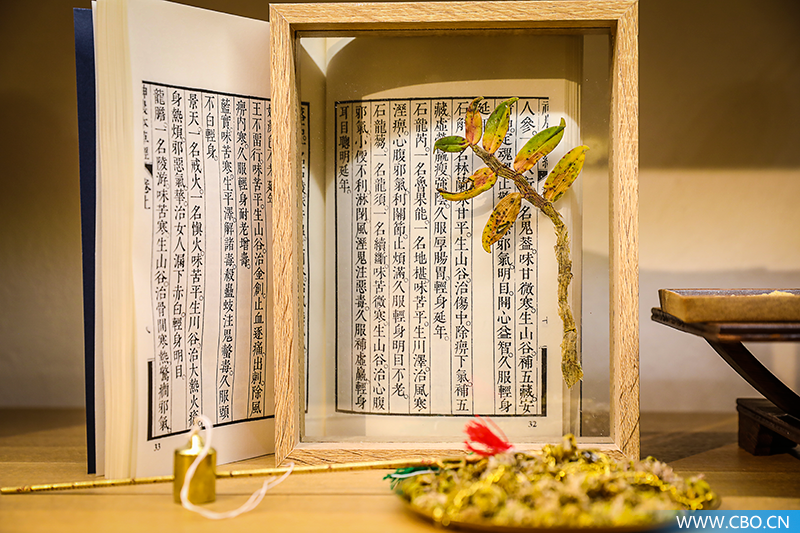 人參。
名鬼蓋味甘微寒生山谷補五藏。安
定魂魄止
邪氣明目開心益智久服輕身
延
石
名林蘭味甘平生山谷治傷中除痹下氣補五
藏虛勞羸瘦強陰久服厚腸胃輕身延年。
石龍芮一名魯果能一名地椹味苦平生川澤治風寒
溼痹心腹邪氣利關節止煩滿久服輕身明目不老。
石龍蒭一名龍須一名續斷味苦微寒生山谷治心腹
邪氣小便不利淋閉風溼鬼注惡毒久服補虛羸輕身
耳目聰明延年。
32
延年
王不留行味苦平生山谷治金創止血逐痛出刺除風
痹內寒久服輕身耐老增壽。
藍實味苦寒生平澤解諸毒殺蟲蚑注鬼螫毒久服頭
不白輕身。
景天一名戒火一名愼火味苦平生川谷治大熱火瘡
身熱煩邪惡氣華治女人漏下赤白輕身明目。
龍膽一名陵游味苦寒生山谷治骨閒寒熱驚癇邪氣
神農本草經 卷上
33
WWW.CBO.CN